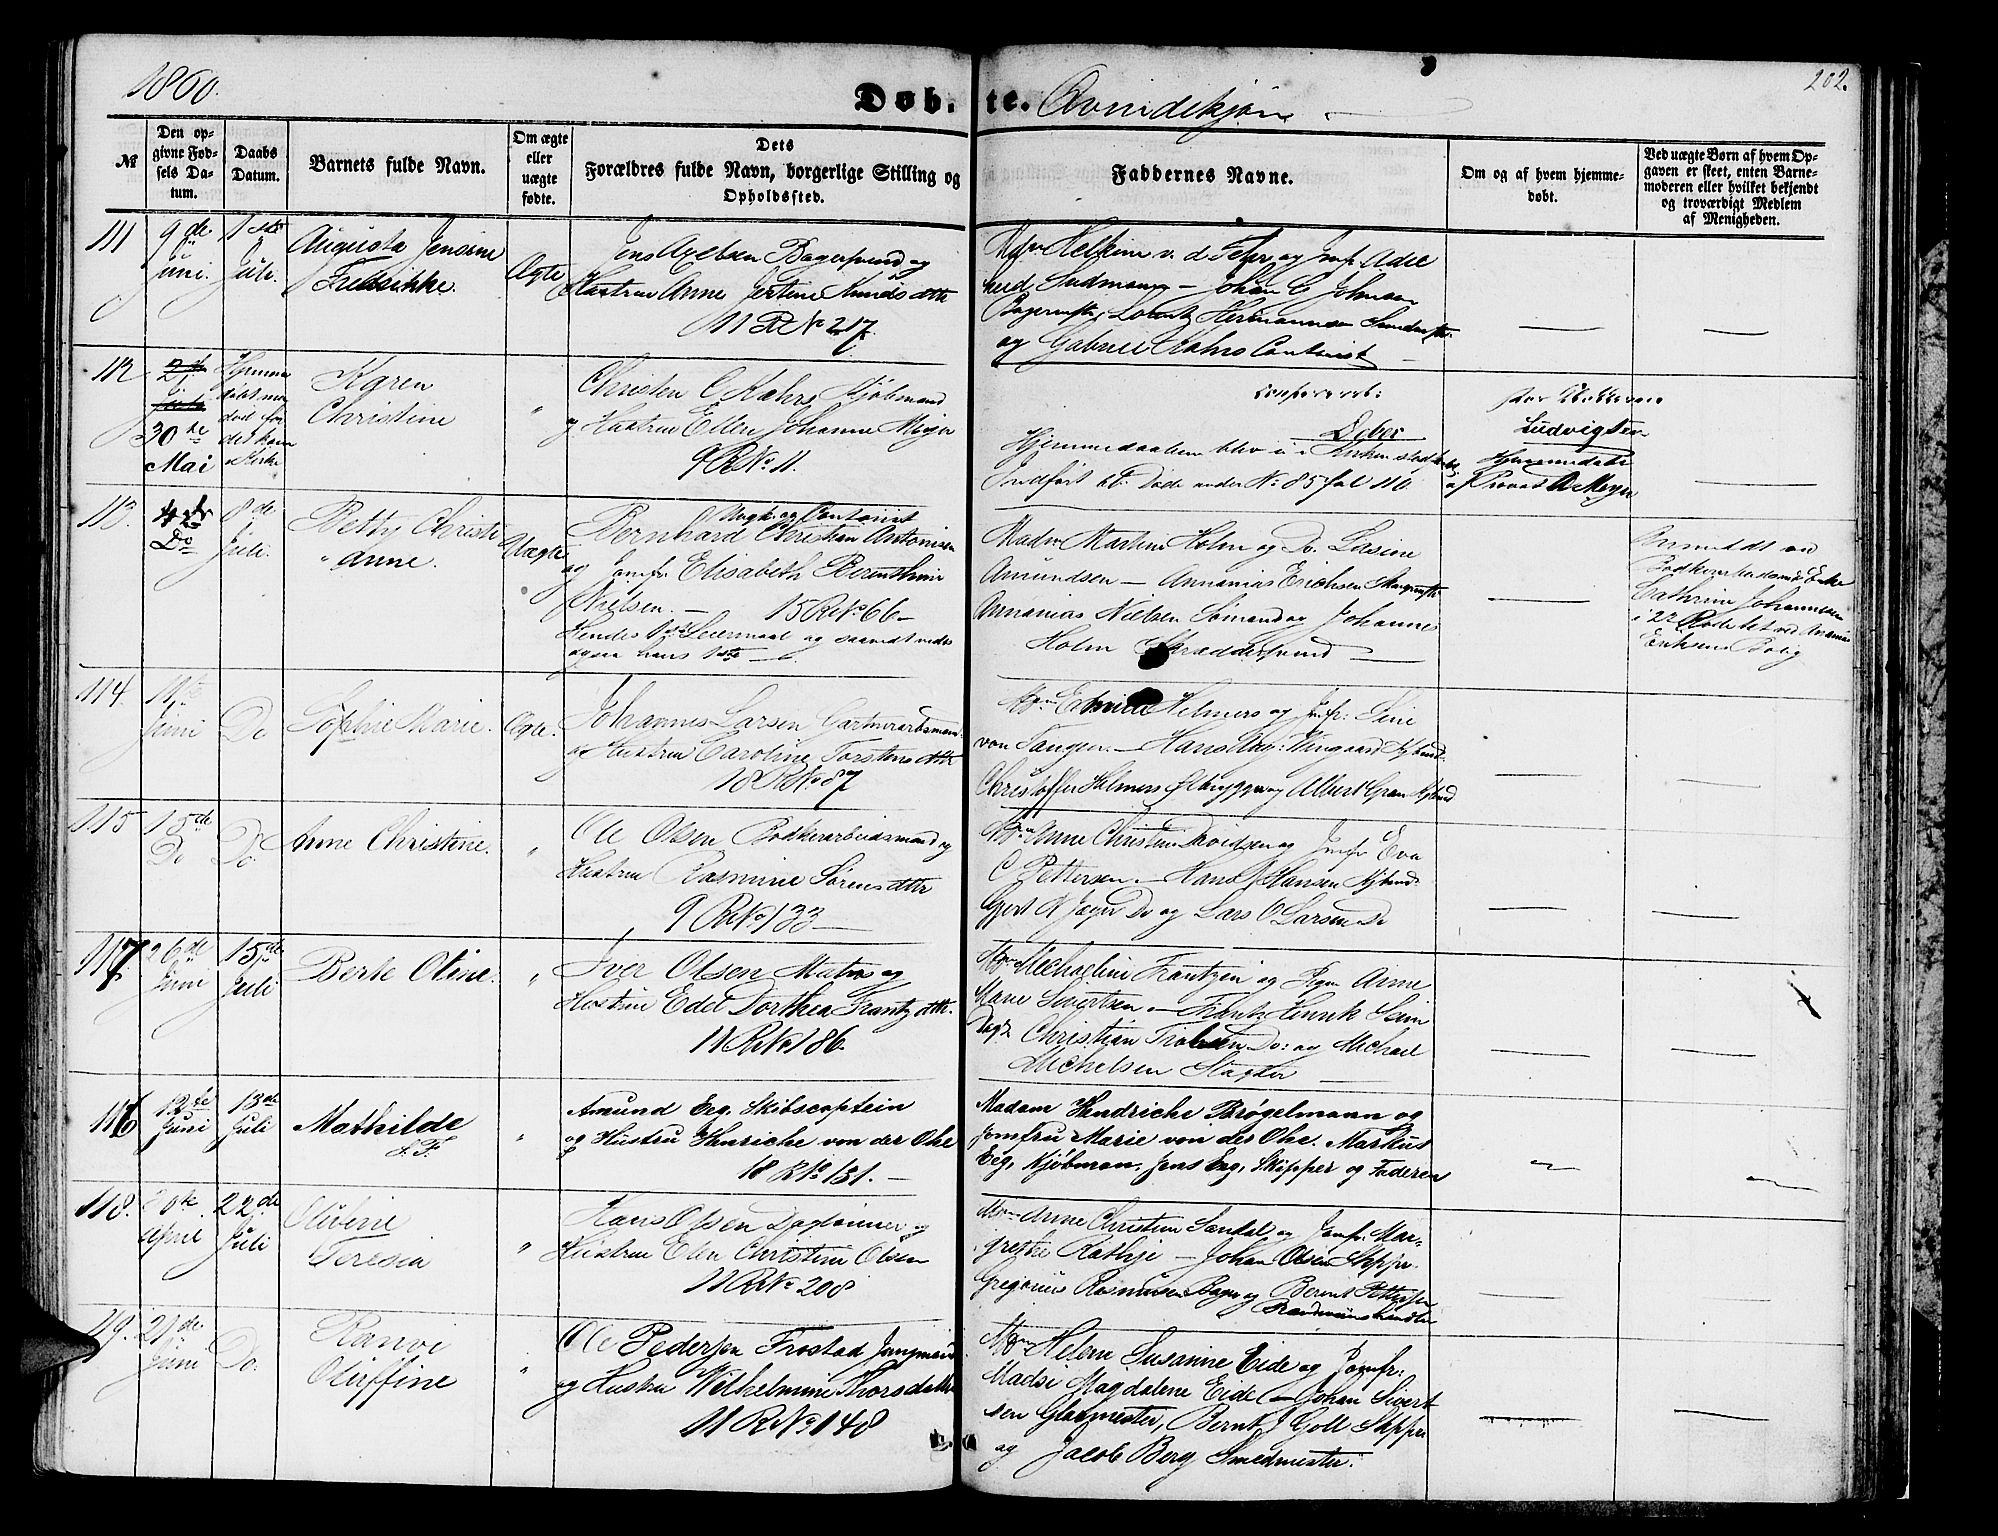 1860.
Døb-te. Qvindekjøn
202.
№
Den opgivne Fødsels Datum.
Daabs Datum.
Barnets fulde Navn.
Om ægte eller uægte fødte.
Dets Forældres fulde Navn, borgerlige Stilling og Opholdssted.
Faddernes Navne.
Om og af hvem hjemmedøbt.
Ved uægte Børn af hvem Opgaven er skeet, enten Barnemoderen eller hvilket bekjendt og troværdigt Medlem af Menigheden.
111
9de Juni.
1ste Juli.
Augusta Jensine
Fredrikke.
Ægte
Jens Axelsen Bagersvend og
Hustrue Anne Jertine Knudsdttr
11 R № 217.
v. d. Fehr og Jmfr. Adel
heid Sudmann — Johan C Johnsen
Bagermstr, Lorentz Hermannsen
og Gabriel Kahrs Contorist
112
30te Mai
Karen
Christine
"
Christen C Kahrs Kjøbmand
og Hustrue Ellen Johanne Meyer
9 R № 11.
Hjemmedaaben blev i Kirken stadfæstet
Indført bl. Døde under № 85 fol 110.
Ludvigsen
Hjemmedøbt
af Provst A Meyer
113.
4de Do
8de Juli.
Betty Christi
anne.
Uægte
Ungk. og Contorist
Bernhard Christian Antonisen
og Jomfr Elisabeth Berenthine
Nielsen. — 15 R № 66 —
Hendes 1ste Leiermaal og saavidt vides
ogsaa hans 1ste —
Madm Martine Holm og Do. Lasine
Amundsen — Annanias Erichsen
Annanias Nielsen Sømand og Johannes
Holm Skræddersvend —
Anmeldt av
Cathrine Johannesen
i 22 Rode
Eriksens Bolig
114.
11te Juni
Do
Sophie Marie.
Ægte.
Johannes Larsen Garverarbmand
og Hustrue Caroline Torstensdttr
18 R № 87
Helmers og Jmfr: Tine
von Tangen. — Hans Wingaard Kjbmd.
Christoffer Helmers Ølbrygger og Albert Gran Kjbmd
115
15de Do
Do.
Anne Christine.
"
Ole Olsen Bødkerarbeidsmand og
Hustrue Rasmine Sørensdttr
9 R № 133 —
Mdm Anne Christine Davidsen og Jmfr Eva
C Pettersen. — Hans J Hansen Kjbmd.
Gjert A Jæger Do og Lars O Larsen Do
117.
26de Juni
15de Juli
Berte Oline.
"
Iver Olsen Matros og
Hustrue Edel Dorthea Frantzdttr.
11 R № 186.
Mdm Michaeline Frantzen og Pigen Anne
Marie Sivertsen. — Frantz Henrik Seim
Dagl. Christian Do: og Michael
Michelsen Slagter —
116
12te Juni
13de Juli
Mathilde
J. F.
"
Amund Eeg, Skibscaptein
og Hustru Henriche von der Ohe
18 R № 151. —
Madam Hendriche Brøgelmann og
Jomfru Marie von der Ohe. Markus
Eeg, Kjøbman, Jens Eeg, Skipper og Faderen
118.
April
22de Juli
Oliverie
Teresia
"
Hans Olsen Daglønner og
Hustrue Elen Christine Olsen
11 R № 208
Mdm Anne Christine Sandal og Jomfr. Mar-
grethe Rathje — Johan Olsen Skipper
Gregorius Rasmussen Bager og Bernt Pettersen
Brændeviinshandler
119.
21de Juni
Do.
Ranvi
Oluffine
"
Ole Pedersen Frostad Jungmand
og Hustru Wilhelmine Thorsdatter
11 R № 148
Mdm Helene Susanne Eide og Jomfr:
Madsi Magdalene Eide — Johan Sivert
sen Glasmester, Bernt J Goll Skipper
og Jacob Berg Smedmester.